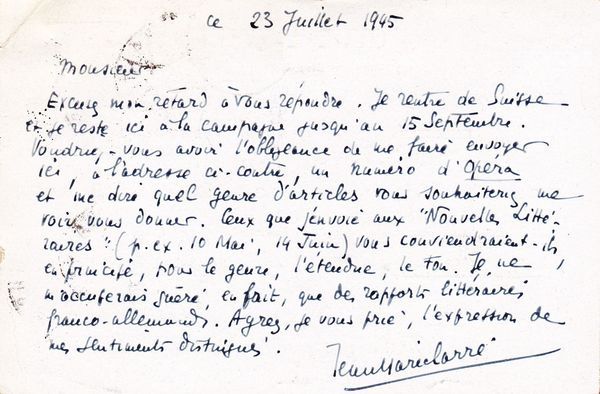 ce 23 Juillet 1945
Monsieur
Excusez mon retard à vous répondre. Je rentre de Suisse
et je reste ici à la campagne jusqu'au 15 Septembre.
Voudriez-vous avoir l'obligeance de me faire envoyer
ici, à l'adresse ci-contre, un numéro d'Opéra
et me dire quel genre d'articles vous souhaiteriez me
voir vous donner. Ceux que j'envoie aux "Nouvelles Litté-
raires" (p. ex. 10 Mai, 14 Juin) vous conviendraient-ils
en principe, pour le genre, l'étendue, le ton. Je ne
m'occuperais guère, en fait, que des rapports littéraires
franco-allemands. Agréez, je vous prie, l'expression de
mes sentiments distingués.
Jean Marie Carré